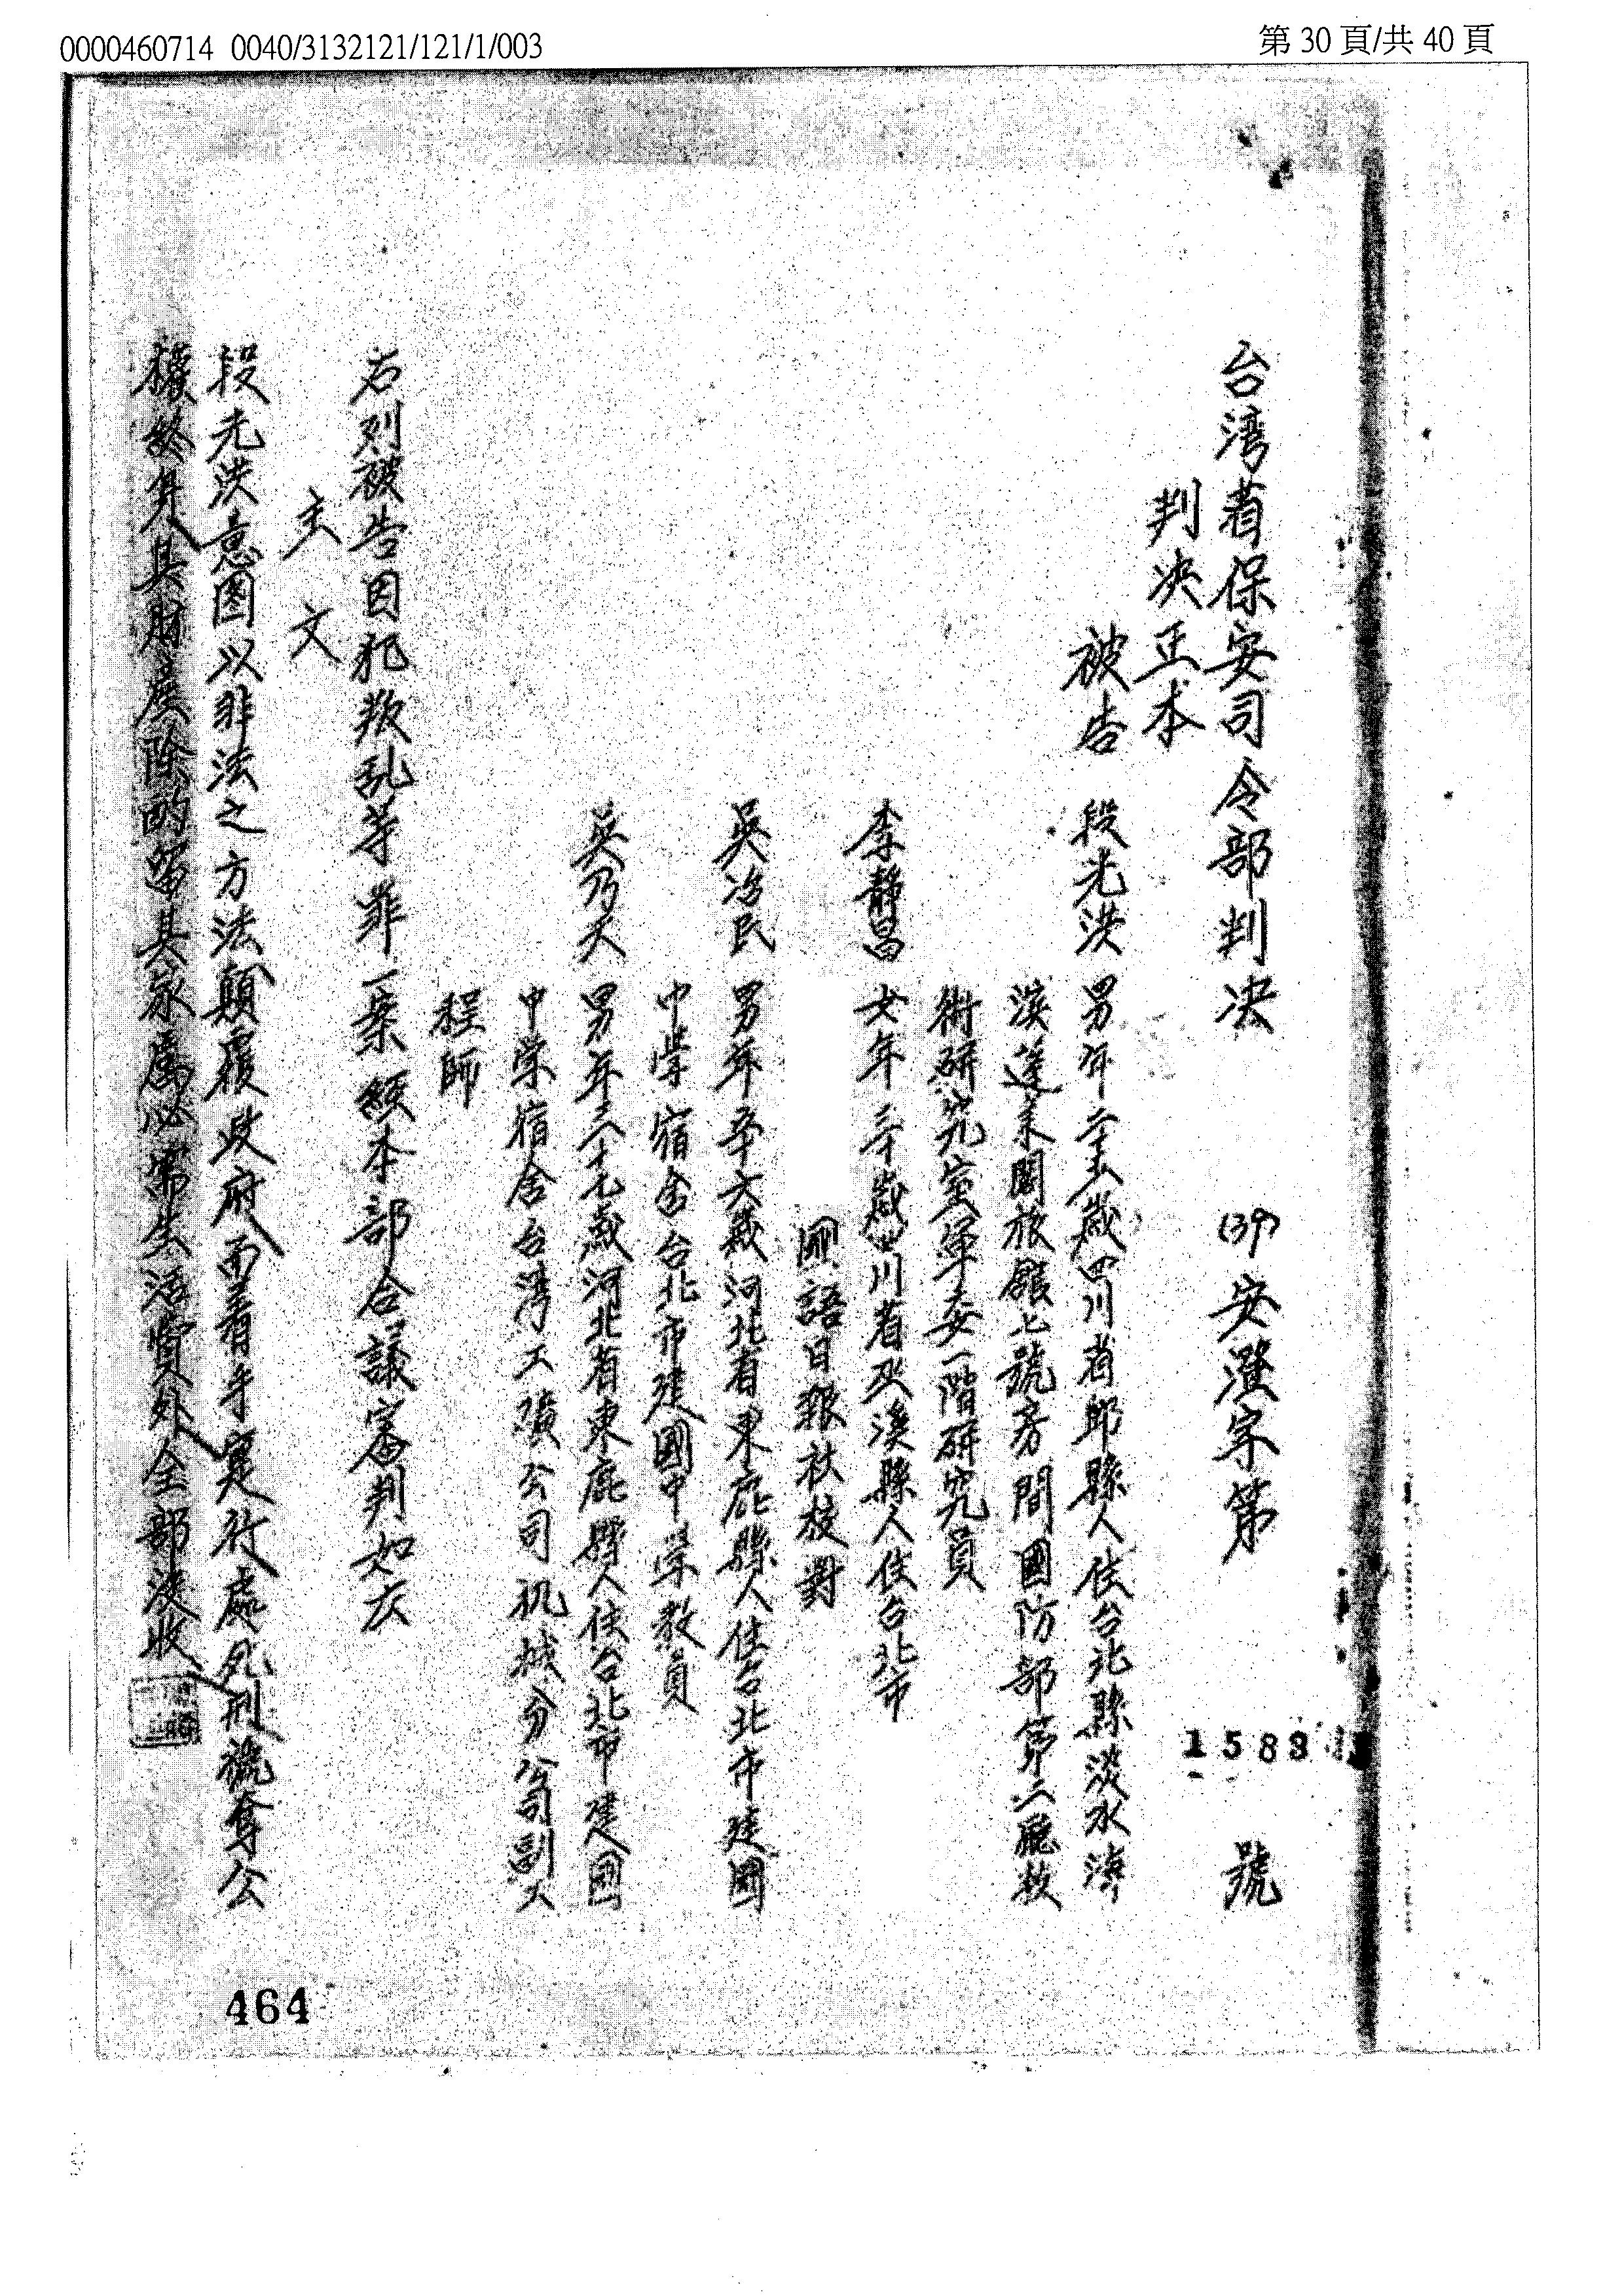 0000460714 0040/3132121/121/1/003
第 30 頁/共 40 頁
台湾省保安司令部判决 (39)安澄字第 1583 號
判决正本
被告 段光洪 男年二十五歲四川省邱縣人住台北縣淡水海
濱蓬萊閣旅館七號房間國防部第二廳技
術研究室軍委一階研究員
李靜昌 女年三十歲四川省巫溪縣人住台北市
國語日報社校對
吳冶民 男年五十六歲河北省束鹿縣人住台北市建國
中學宿舍台北市建國中學教員
吳乃天 男年三十七歲河北省束鹿縣人住台北市建國
中學宿舍台湾工礦公司机械分公司副工
程師
右列被告因犯叛乱等罪一案經本部合議審判如左
主文
段光洪意圖以非法之方法顛覆政府而着手實行處死刑褫奪公
權終身其財產除酌留其家屬必需生活費外全部沒收
464